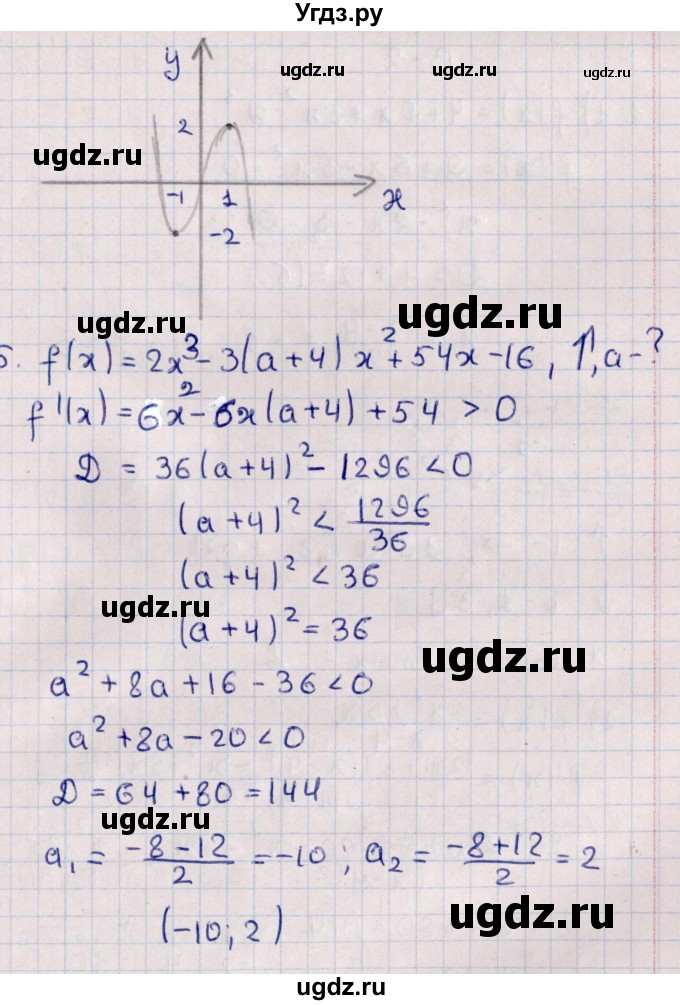 Угдз.ру
y
ugdz.ru ugdz.ru ugdz.ru
2
ugdz.ru
-1 1 x
-2
ugdz.ru ugdz.ru
5. f(x) = 2x³ - 3(a+4)x² + 54x - 16, ⇑, a - ?
f'(x) = 6x² - 6x(a+4) + 54 > 0
D = 36(a+4)² - 1296 < 0
(a+4)² < 1296/36
(a+4)² < 36
ugdz.ru
(a+4)² = 36
ugdz.ru
a² + 8a + 16 - 36 < 0
a² + 8a - 20 < 0
D = 64 + 80 = 144
ugdz.ru
a₁ = (-8-12)/2 = -10; a₂ = (-8+12)/2 = 2
ugdz.ru
(-10; 2)
ugdz.ru